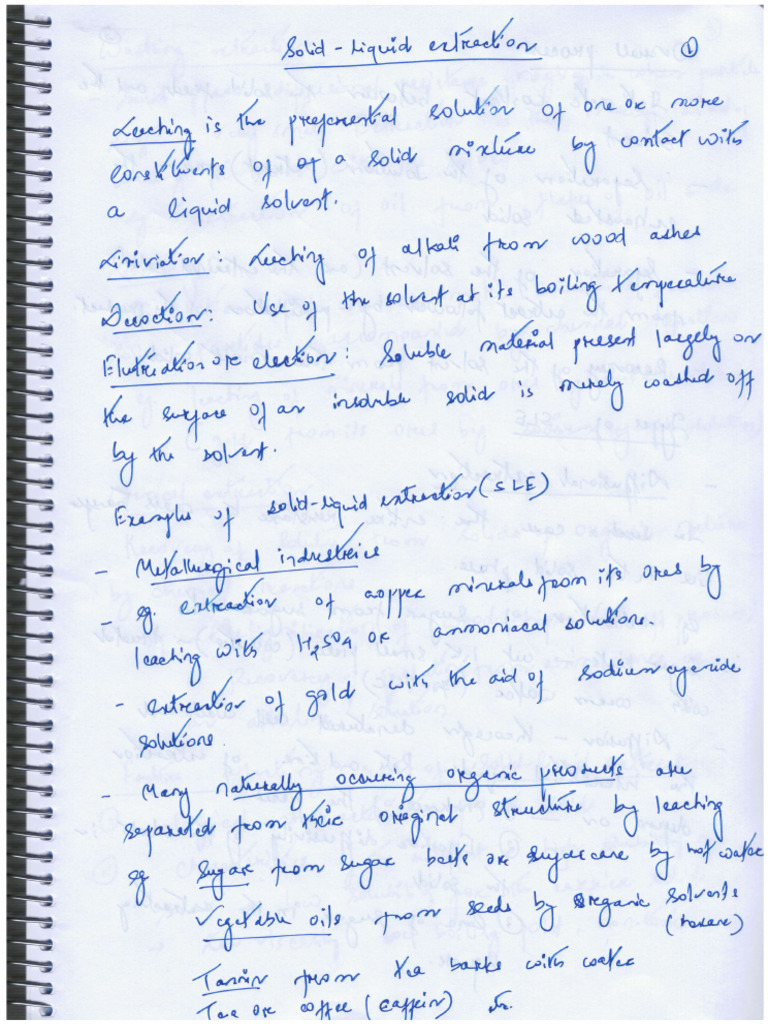 Solid-liquid extraction ①
Leaching is the preferential solution of one or more
constituents of of a solid mixture by contact with
a liquid solvent.
Lixiviation : Leaching of alkali from wood ashes
Decoction: Use of the solvent at its boiling temperature
Elutriation or elution : Soluble material present largely on
the surface of an insoluble solid is merely washed off
by the solvent.
Examples of solid-liquid extraction (SLE)
- Metallurgical industries
- eg. extraction of copper minerals from its ores by
leaching with H2SO4 or ammoniacal solutions.
- extraction of gold with the aid of sodium cyanide
solutions.
- Many naturally occuring organic products are
separated from their original structure by leaching
eg Sugar from sugar beets or sugarcane by hot water
Vegetable oils from seeds by organic solvents
(hexane)
Tannin from tea barks with water
Tea or coffee (caffein) etc.